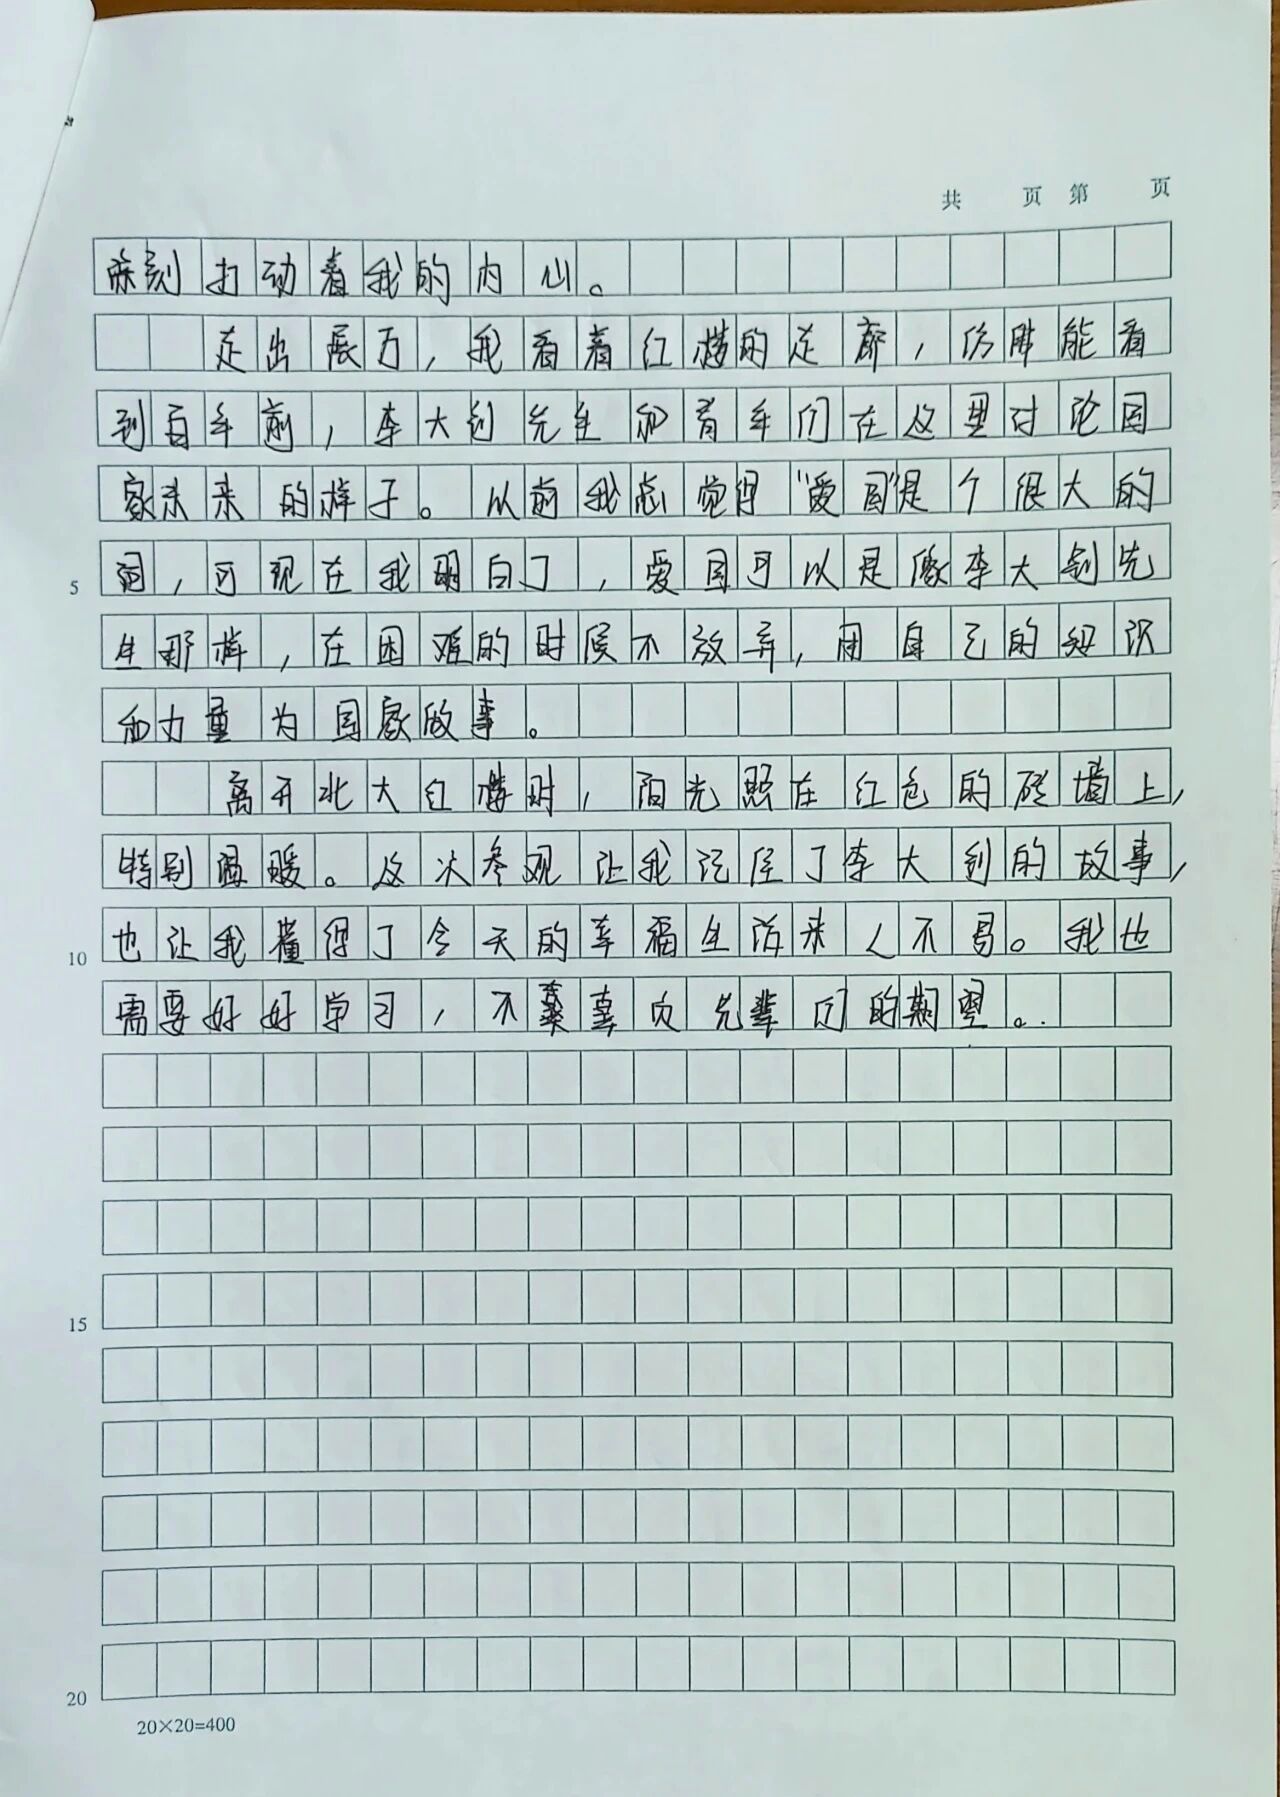 共 页 第 页
深刻打动着我的内心。
走出展厅，我看着红楼的走廊，仿佛能看
到百年前，李大钊先生和青年们在这里讨论国
家未来的样子。以前我总觉得“爱国”是个很大的
词，可现在我明白了，爱国可以是像李大钊先
5
生那样，在困难的时候不放弃，用自己的知识
和力量为国家做事。
离开北大红楼时，阳光照在红色的砖墙上，
特别温暖。这次参观让我记住了李大钊的故事，
也让我懂得了今天的幸福生活来之不易。我也
10
需要好好学习，不辜负先辈们的期望。
15
20
20×20=400